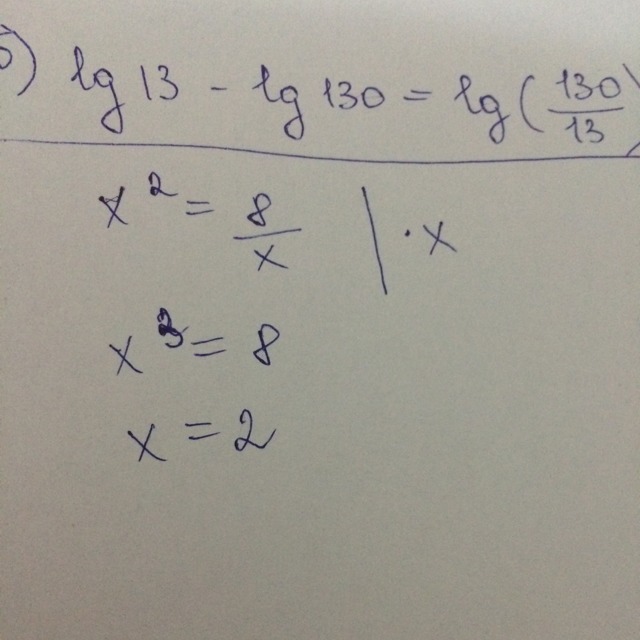 б) lg 13 - lg 130 = lg(130/13)
x² = 8/x | · x
x³ = 8
x = 2